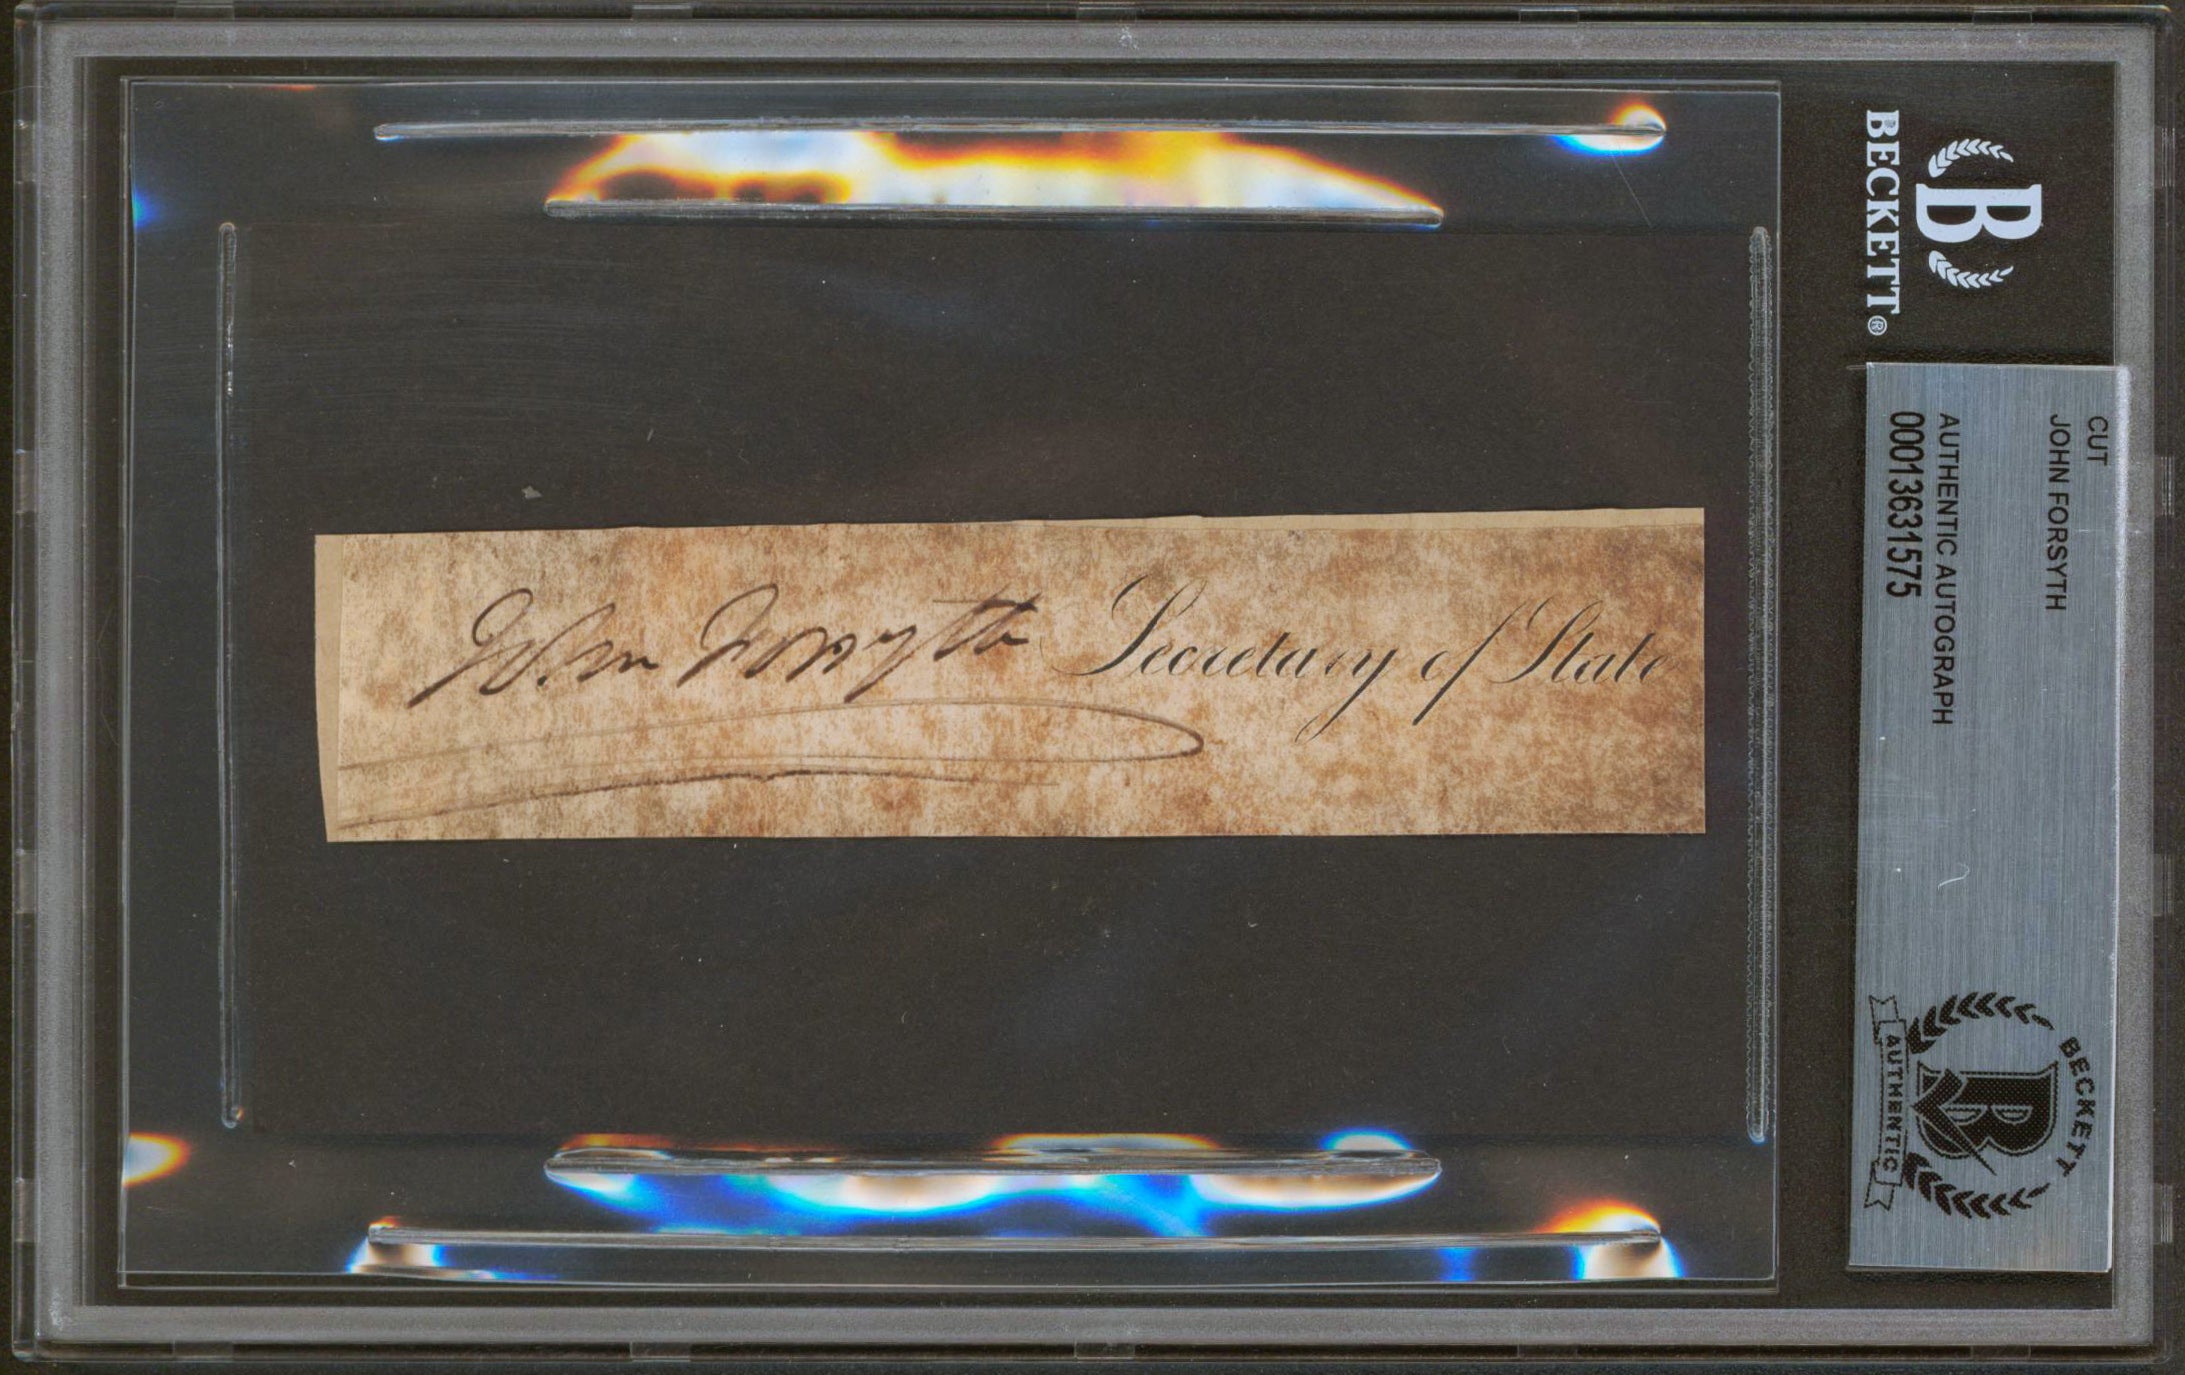 John Forsyth Secretary of State
BECKETT®
B
CUT
JOHN FORSYTH
AUTHENTIC AUTOGRAPH
00013631575
BECKETT
B
AUTHENTIC